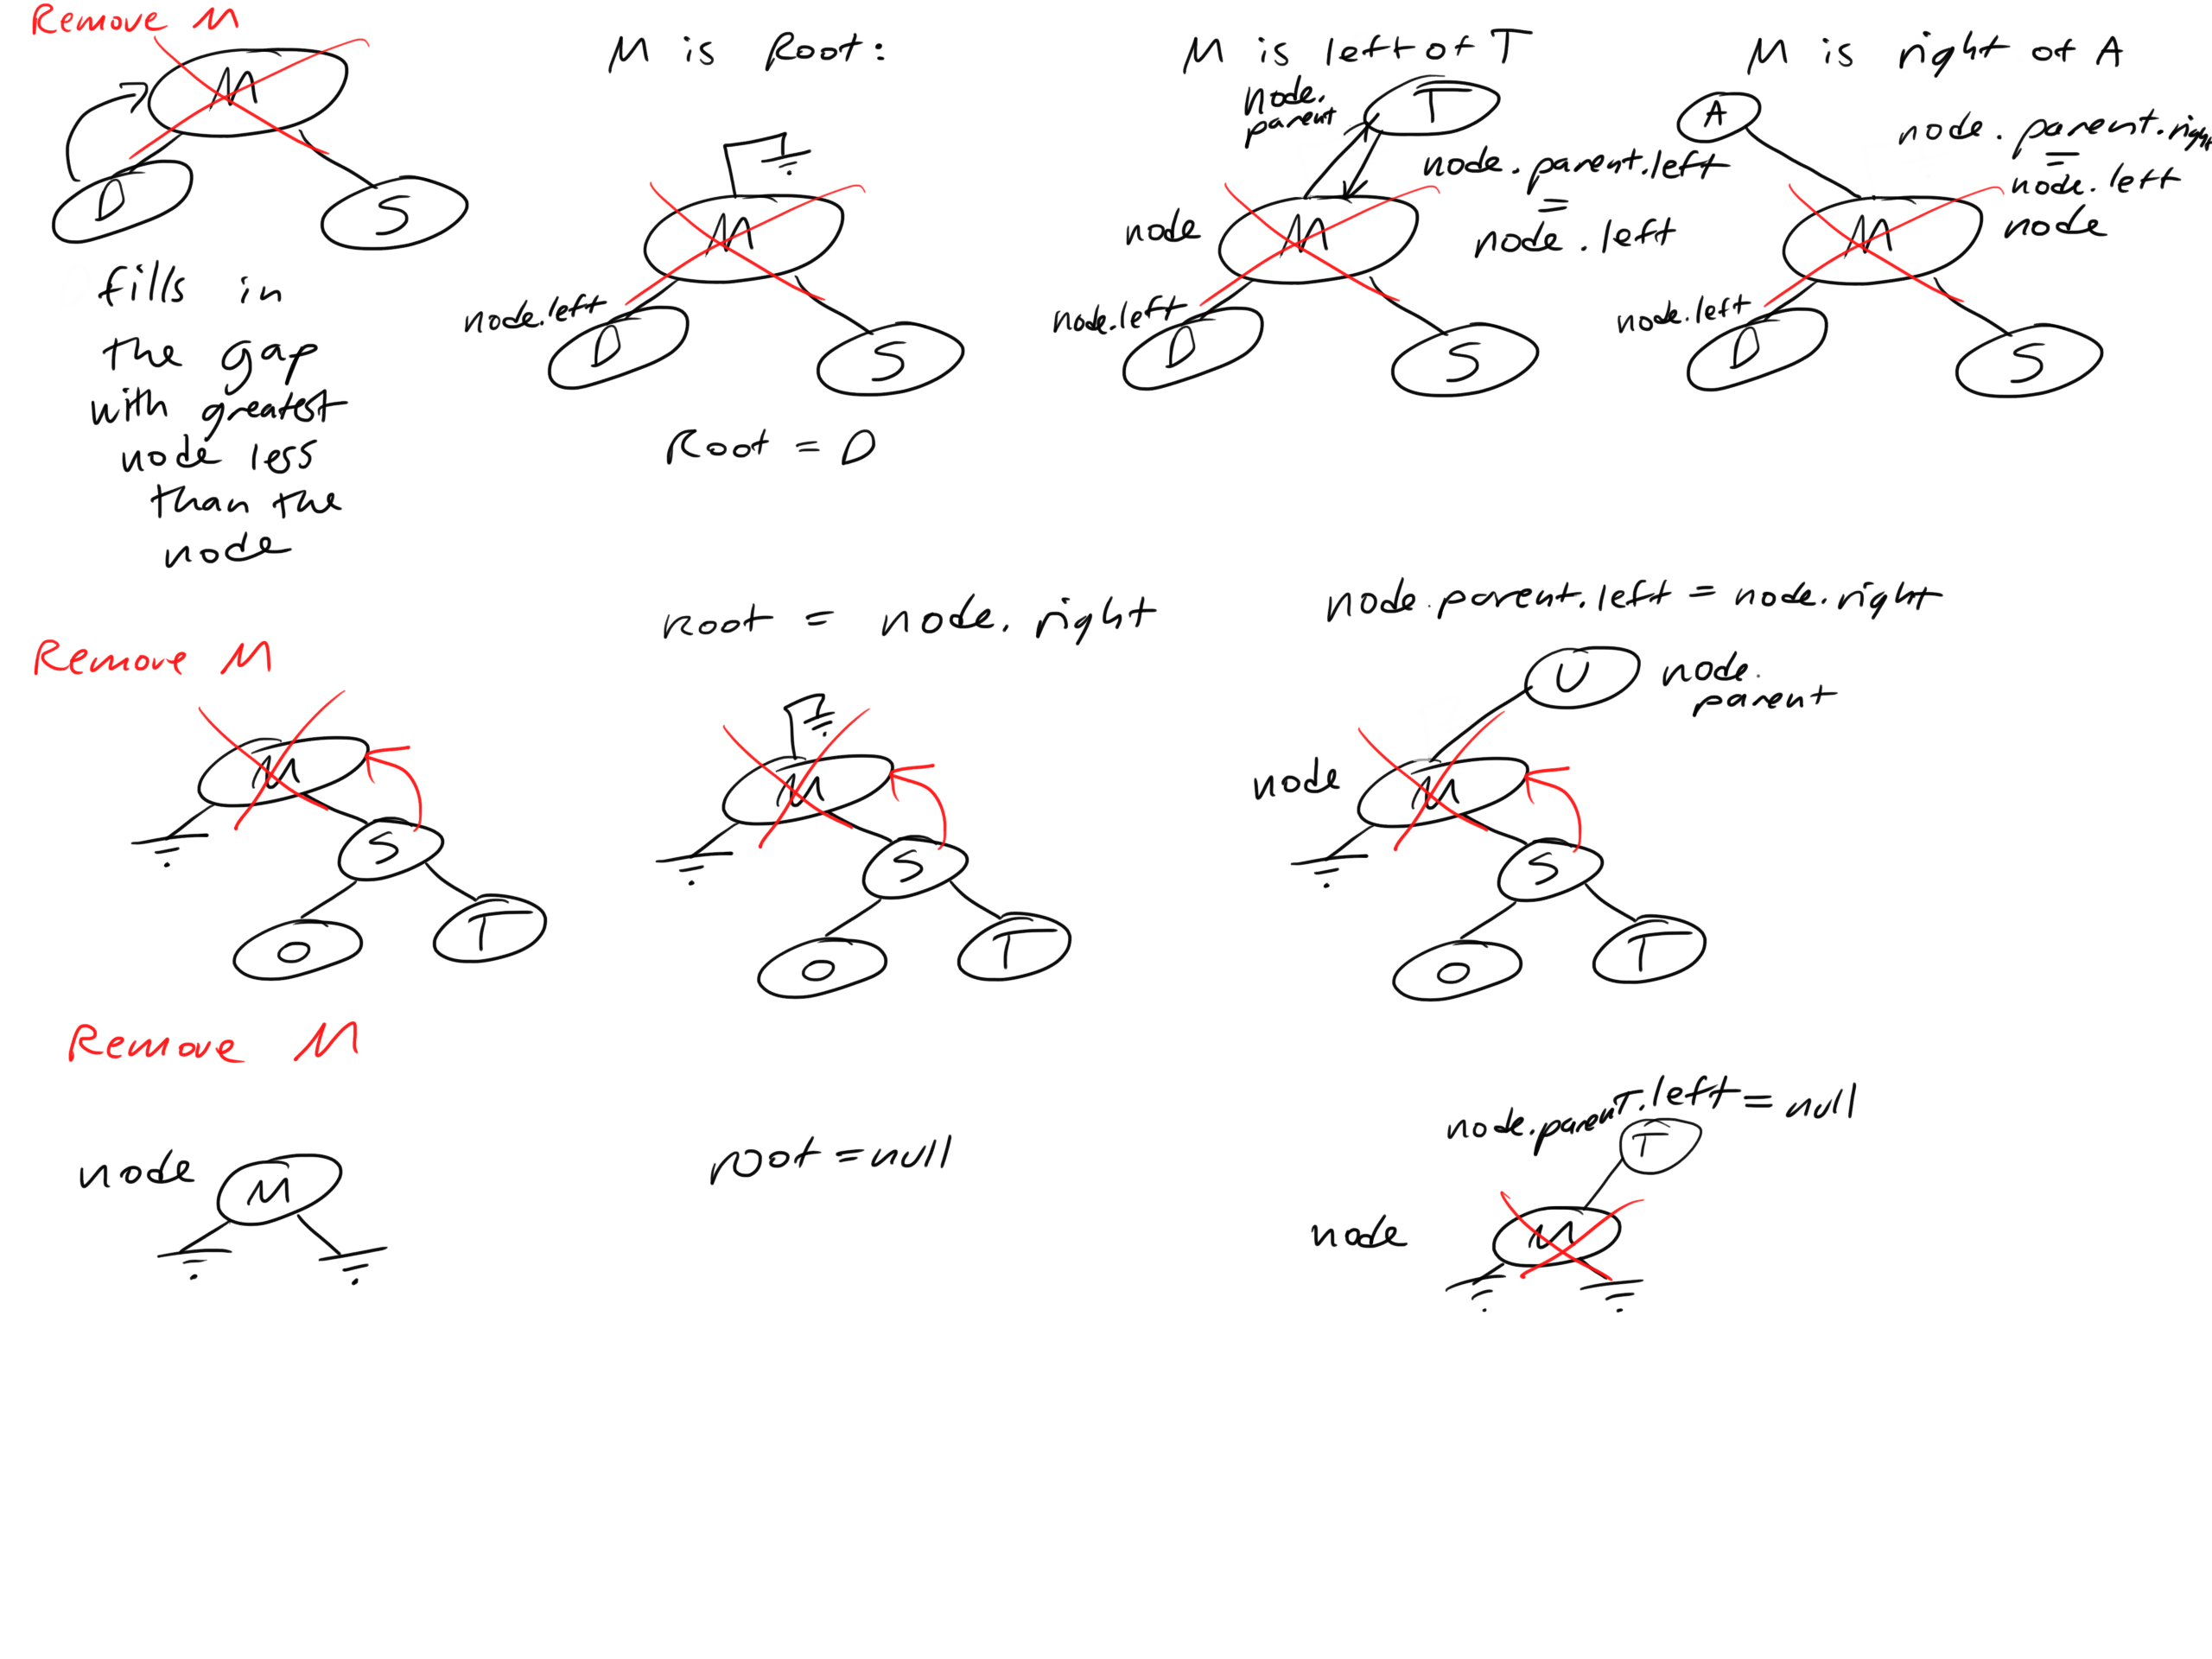 Remove M
M
D
S
fills in
the gap
with greatest
node less
than the
node
M is Root:
M
node.left
D
S
Root = D
M is left of T
node.
parent
T
node.parent.left
=
node.left
node
M
node.left
D
S
M is right of A
A
node.parent.right
=
node.left
node
M
node.left
D
S
Remove M
M
S
O
T
root = node.right
M
S
O
T
node.parent.left = node.right
U
node.
parent
node
M
S
O
T
Remove M
node
M
root = null
node.parent.left = null
T
node
M